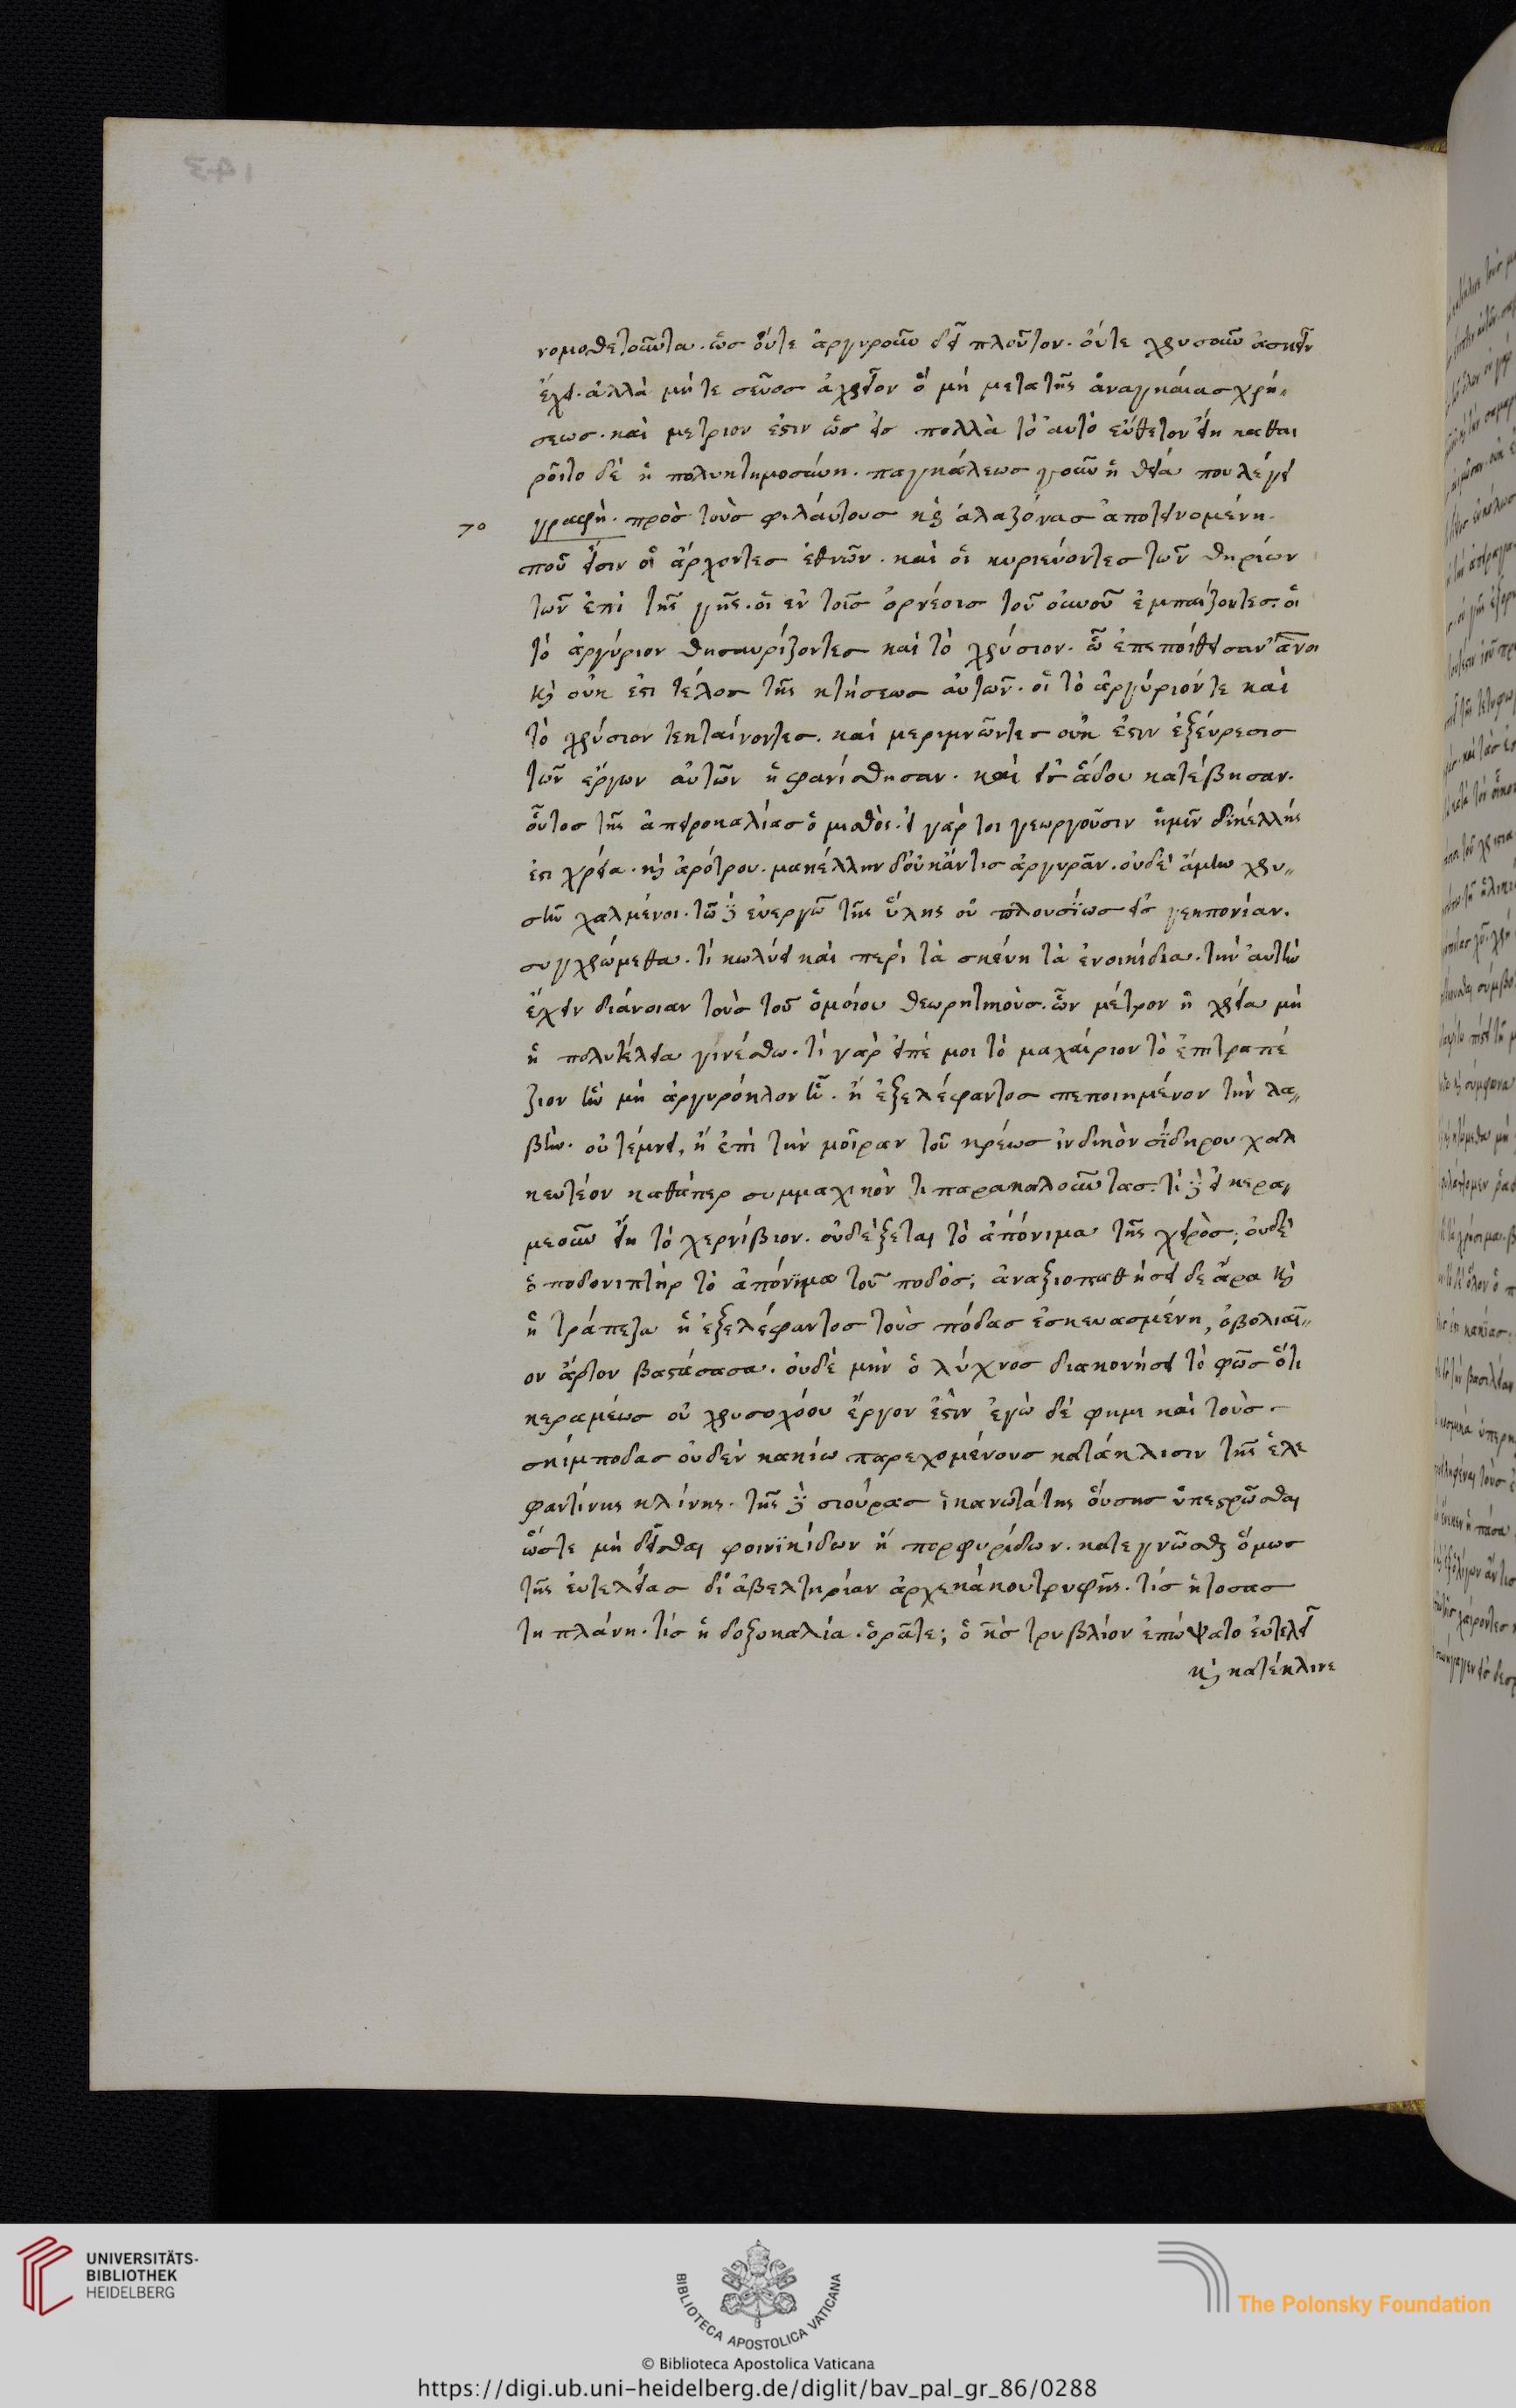 143
νομοθετοῦντα. ὡς οὔτε ἀργυροῦν δεῖ πλοῦτον. οὔτε χρυσοῦν ἀσκεῖν
ἔχει. ἀλλὰ μήτε σεῦος ἀχρεῖον ὃ μὴ μετα τῆς ἀναγκαίας χρή„
σεως. καὶ μετριον ἐστιν ὡς εἰς πολλὰ τὸ αυτὸ εὔθετον εἴη καθαι
ροῖτο δὲ ἡ πολυκτημοσύνη. παγκάλεως γοῦν ἡ θεία που λέγει
70 γραφὴ. πρὸς τοὺς φιλάυτους κ̀ς ἀλαζόνας ἀποτεινομένη.
ποῦ εἰσιν οἱ ἄρχοντες ἐθνῶν. καὶ οἱ κυριεύοντες τῶν θηρίων
τῶν ἐπὶ τῆς γῆς. οἱ εν τοῖς ὀρνέοις τοῦ οὐνοῦ ἐμπαίζοντες. οἱ
τὸ ἀργύριον θησαυρίζοντες καὶ τὸ χρύσιον. ᾧ ἐπεποίθεισαν ἄνοι
κ̀ς οὐκ ἔστι τέλος τῆς κτήσεως αὐτῶν. οἱ τὸ ἀργύριόν τε καὶ
τὸ χρύσιον τεκταίνοντες. καὶ μεριμνῶντες οὐκ ἔστιν ἐξεύρεσις
τῶν ἔργων αὐτῶν ἠφανίσθησαν. καὶ εἰς ᾅδου κατέβησαν.
οὗτος τῆς ἀπειροκαλίας ὁ μισθὸς. εἰ γάρ τοι γεωργοῦσιν ἡμῖν δικέλλης
ἐστι χρεία. κ̀ς ἀρότρου. μακέλλην δ'οὐκ ἄν τις ἀργυρᾶν. οὐδὲ ἄμην χρυ„
σῆν χαλμένοι. τῶ δὲ εὐεργῶ τῆς ὕλης οὐ πλουσίως εἰς γεηπονίαν.
συγχρώμεθα. τί κωλύει καὶ περὶ τὰ σκεύη τὰ ἐνοικίδια. τὴν αὐτὴν
ἔχειν διάνοιαν τοὺς τοῦ ὁμοίου θεωρητικοὺς. ὧν μέτρον ἡ χρεία μὴ
ἡ πολυτέλεια γινέσθω. τί γὰρ εἰπέ μοι τὸ μαχαίριον τὸ ἐπιτραπέ
ζιον ἢν μὴ ἀργυρόηλον ἦ. ἢ ἐξελέφαντος πεποιημένον τὴν λα„
βὴν. οὐ τέμνει, ἢ ἐπὶ τὴν μοῖραν τοῦ κρέως ἰνδικὸν σίδηρον χαλ
κευτέον καθάπερ συμμαχικὸν τι παρακαλοῦντας. τί δὲ εἰ κερα„
μεοῦν εἴη τὸ χερνίβιον. οὐδέξεται τὸ ἀπόνιμα τῆς χειρὸς; οὐδὲ
ὁ ποδονιπτὴρ τὸ ἀπόνιμα τοῦ ποδὸς; ἀναξιοπαθήσει δε ἄρα κ̀ς
ἡ τράπεζα ἡ ἐξελέφαντος τοὺς πόδας ἐσκευασμένη, ὀβολιαῖ„
ον ἄρτον βαστάσασα. οὐδὲ μὴν ὁ λύχνος διακονήσει τὸ φῶς ὅτι
κεραμέως οὐ χρυσοχόου ἔργον ἐστὶν ἐγὼ δέ φημι καὶ τοὺς
σκίμποδας οὐδὲν κακίω παρεχομένους κατάκλισιν τῆς ἐλε
φαντίνης κλίνης. τῆς δὲ σισύρας ἱκανωτάτης οὔσης ὑπεστρῶσθαι
ὥστε μὴ δεῖσθαι φοινικίδων ἢ πορφυρίδων. κατεγνῶσθαι ὅμως
τῆς εὐτελείας δι' ἀβελτηρίαν ἀρχεκάκου τρυφῆς. τίς ἡ τοσας
τη πλάνη. τίς ἡ δοξοκαλία. ὁρᾶτε; ὁ κ̅ς τρυβλίον ἐπώψατο εὐτελεῖ
κ̀ς κατέκλινε
UNIVERSITÄTS-
BIBLIOTHEK
HEIDELBERG
BIBLIOTECA APOSTOLICA VATICANA
The Polonsky Foundation
© Biblioteca Apostolica Vaticana
https://digi.ub.uni-heidelberg.de/diglit/bav_pal_gr_86/0288